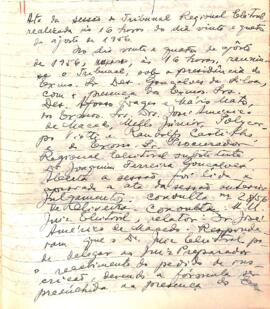 Ata da sessão do Tribunal Regional Eleitoral
realizada às 16 horas do dia vinte e quatro
de agosto de 1956.
Aos dia vinte e quatro de agosto
de 1956, às 16 horas, reuniu-
se o Tribunal, sob a presidência do
Exmo. Sr. Des. Gonçalves da Silva,
com a presença dos Exmos. Srs.
Des. Afonso e Mário Matos,
do Exmo. Sr. Dr. José Américo
de Macedo, Mello Júnior,
e
do Exmo. Sr. Procurador
Regional Eleitoral substituto
Dr. Joaquim Ferreira Gonçalves
Aberta a sessão foi lida e
aprovada a ata da sessão anterior.
Julgamento: consulta nº 2.856
de
Juiz Eleitoral, relator: Dr. José
Américo de Macedo. Responde
ram que o Dr. Juiz Eleitoral po
de delegar ao Juiz Preparador
o recebimento do pedido de ins
crição, devendo a fórmula ser
preenchida na presença do